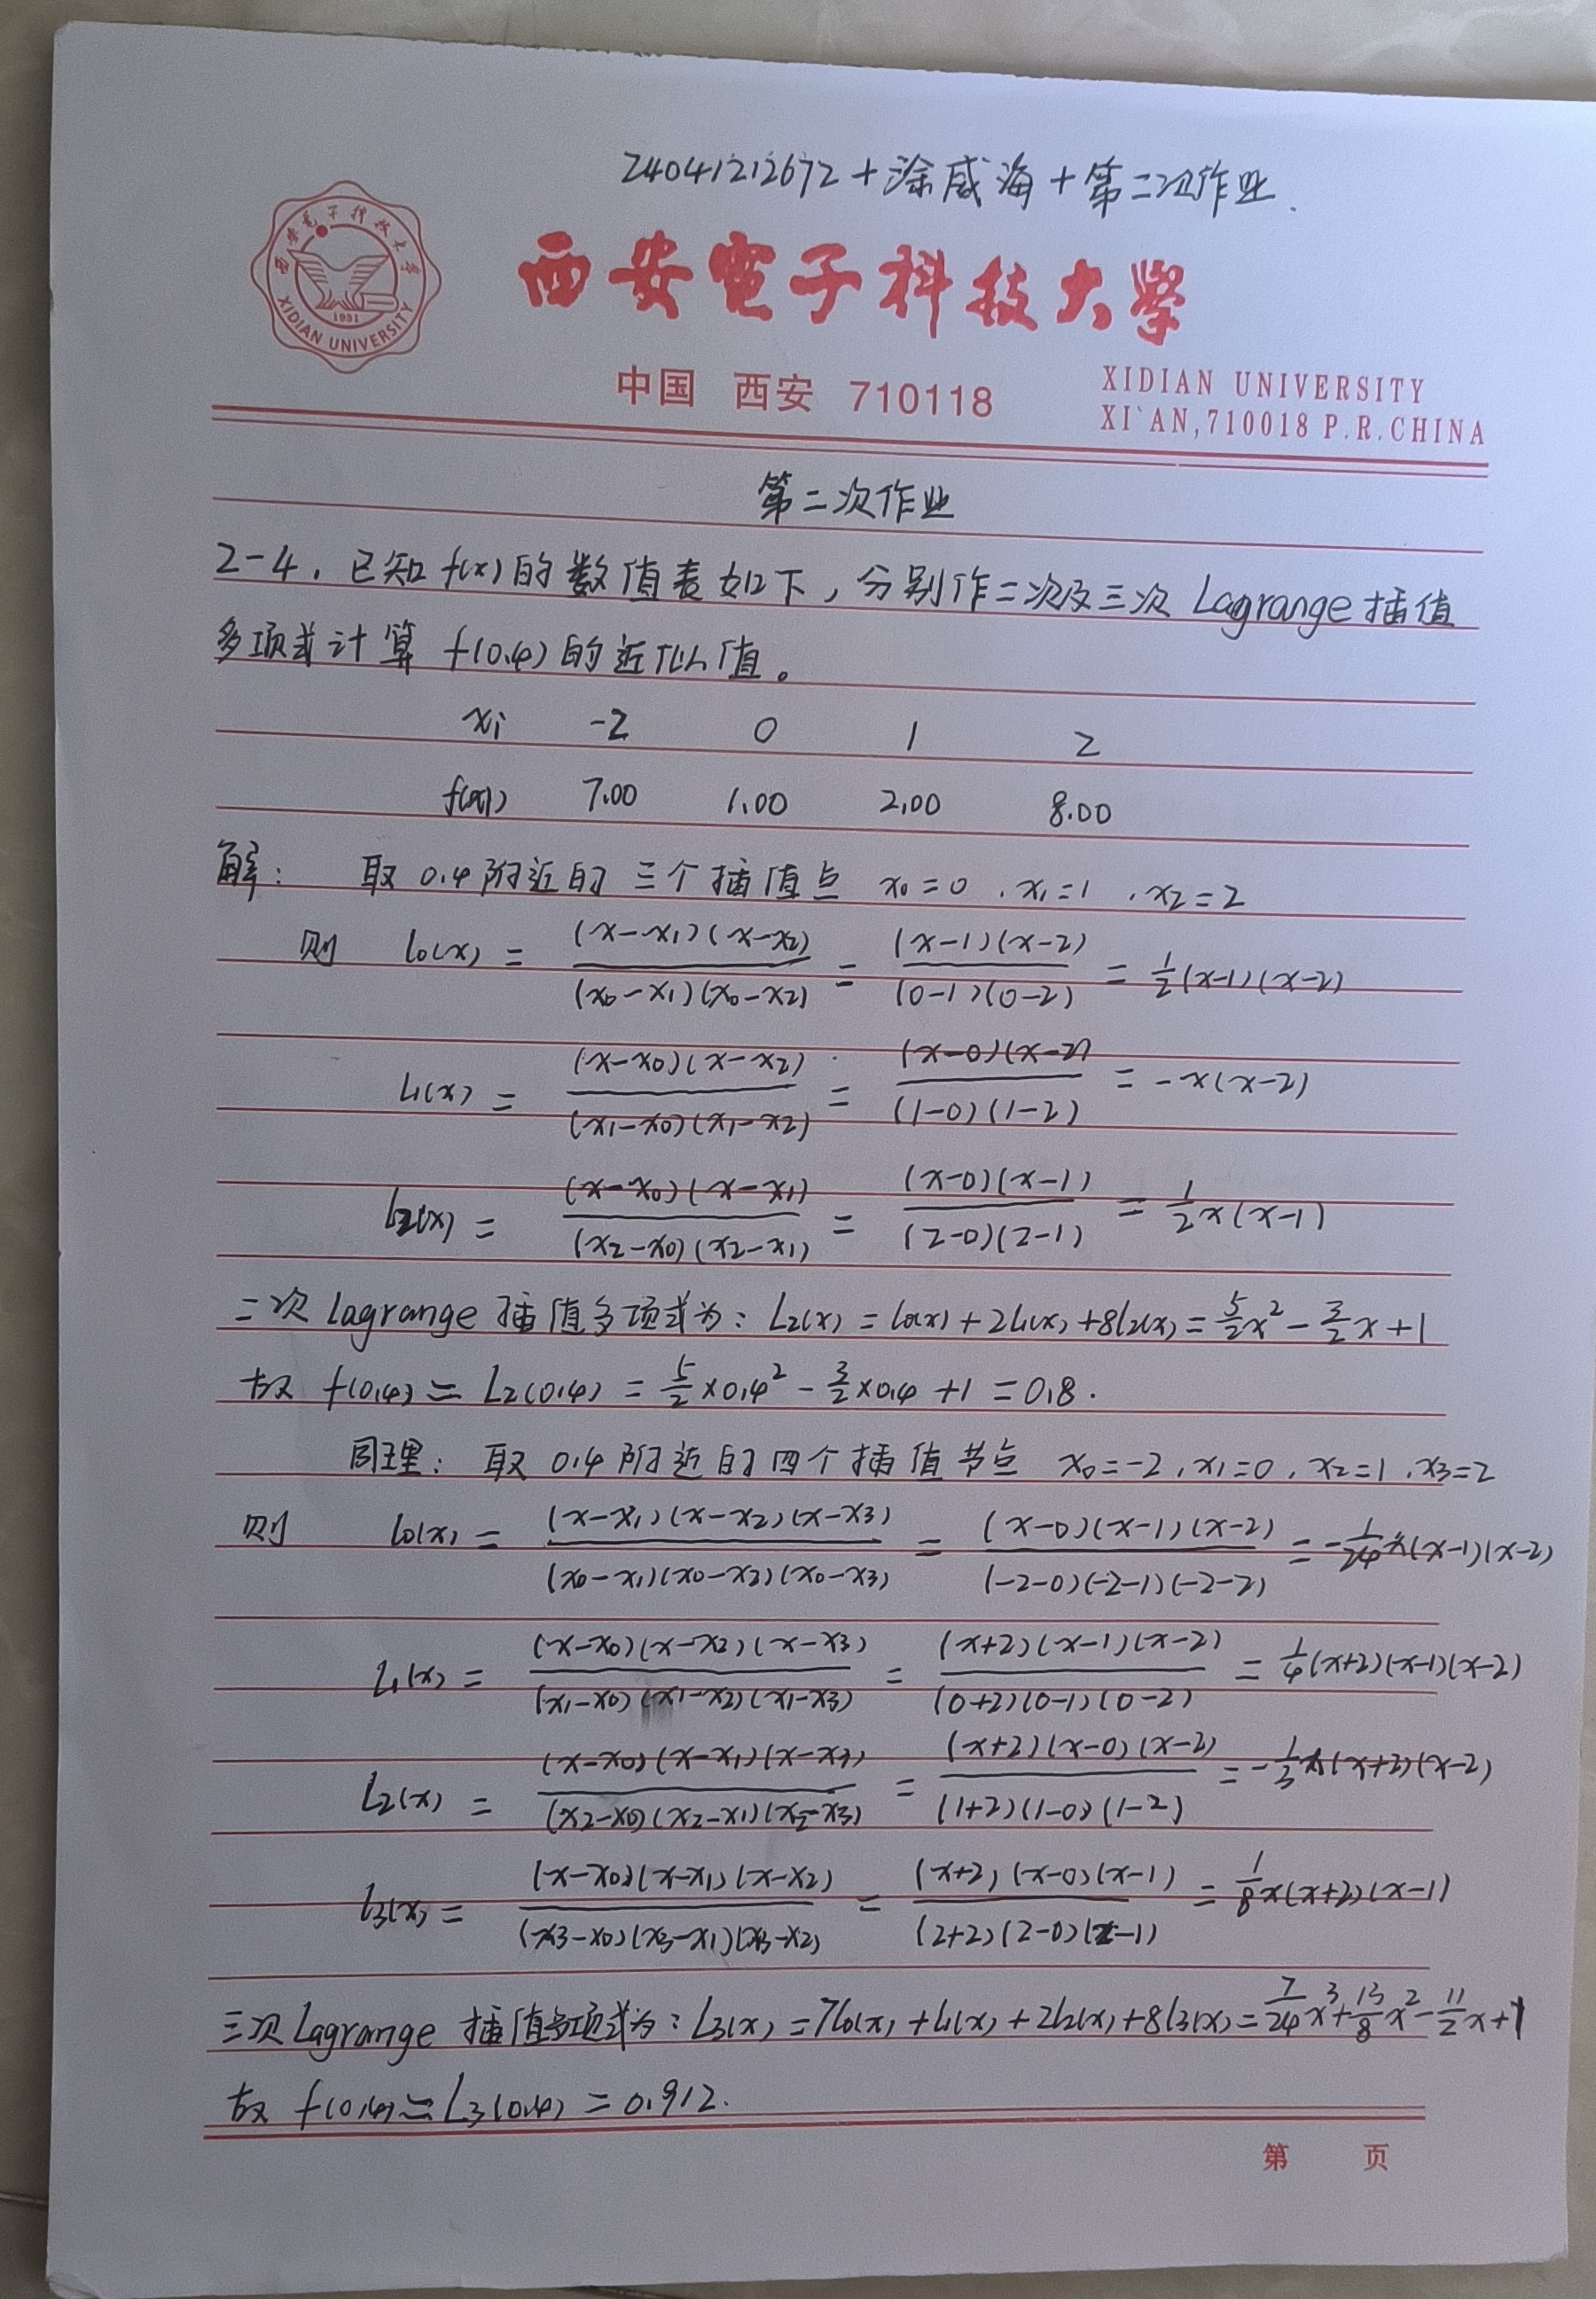 24041212672+涂威海+第二次作业.
西安電子科技大學
西安電子科技大學
1931
XIDIAN UNIVERSITY
中国 西安 710118
XIDIAN UNIVERSITY
XI`AN,710018 P.R.CHINA
第二次作业
2-4. 已知 f(x) 的数值表如下，分别作二次及三次 Lagrange 插值
多项式计算 f(0.4) 的近似值。
xi -2 0 1 2
f(xi) 7.00 1.00 2.00 8.00
解： 取 0.4 附近的三个插值点 x0=0 . x1=1 . x2=2
则 l0(x) = (x-x1)(x-x2) / (x0-x1)(x0-x2) = (x-1)(x-2) / (0-1)(0-2) = 1/2 (x-1)(x-2)
l1(x) = (x-x0)(x-x2) / (x1-x0)(x1-x2) = (x-0)(x-2) / (1-0)(1-2) = -x(x-2)
l2(x) = (x-x0)(x-x1) / (x2-x0)(x2-x1) = (x-0)(x-1) / (2-0)(2-1) = 1/2 x(x-1)
二次 Lagrange 插值多项式为: L2(x) = l0(x) + 2l1(x) + 8l2(x) = 5/2 x² - 3/2 x + 1
故 f(0.4) ≃ L2(0.4) = 5/2 ×0.4² - 3/2 ×0.4 + 1 = 0.8.
同理: 取 0.4 附近的四个插值节点 x0=-2 . x1=0 . x2=1 . x3=2
则 l0(x) = (x-x1)(x-x2)(x-x3) / (x0-x1)(x0-x2)(x0-x3) = (x-0)(x-1)(x-2) / (-2-0)(-2-1)(-2-2) = -1/24 x(x-1)(x-2)
l1(x) = (x-x0)(x-x2)(x-x3) / (x1-x0)(x1-x2)(x1-x3) = (x+2)(x-1)(x-2) / (0+2)(0-1)(0-2) = 1/4 (x+2)(x-1)(x-2)
l2(x) = (x-x0)(x-x1)(x-x3) / (x2-x0)(x2-x1)(x2-x3) = (x+2)(x-0)(x-2) / (1+2)(1-0)(1-2) = -1/3 x(x+2)(x-2)
l3(x) = (x-x0)(x-x1)(x-x2) / (x3-x0)(x3-x1)(x3-x2) = (x+2)(x-0)(x-1) / (2+2)(2-0)(2-1) = 1/8 x(x+2)(x-1)
三次 Lagrange 插值多项式为: L3(x) = 7l0(x) + l1(x) + 2l2(x) + 8l3(x) = 7/24 x³ + 13/8 x² - 11/2 x + 1
故 f(0.4) ≃ L3(0.4) = 0.912.
第 页